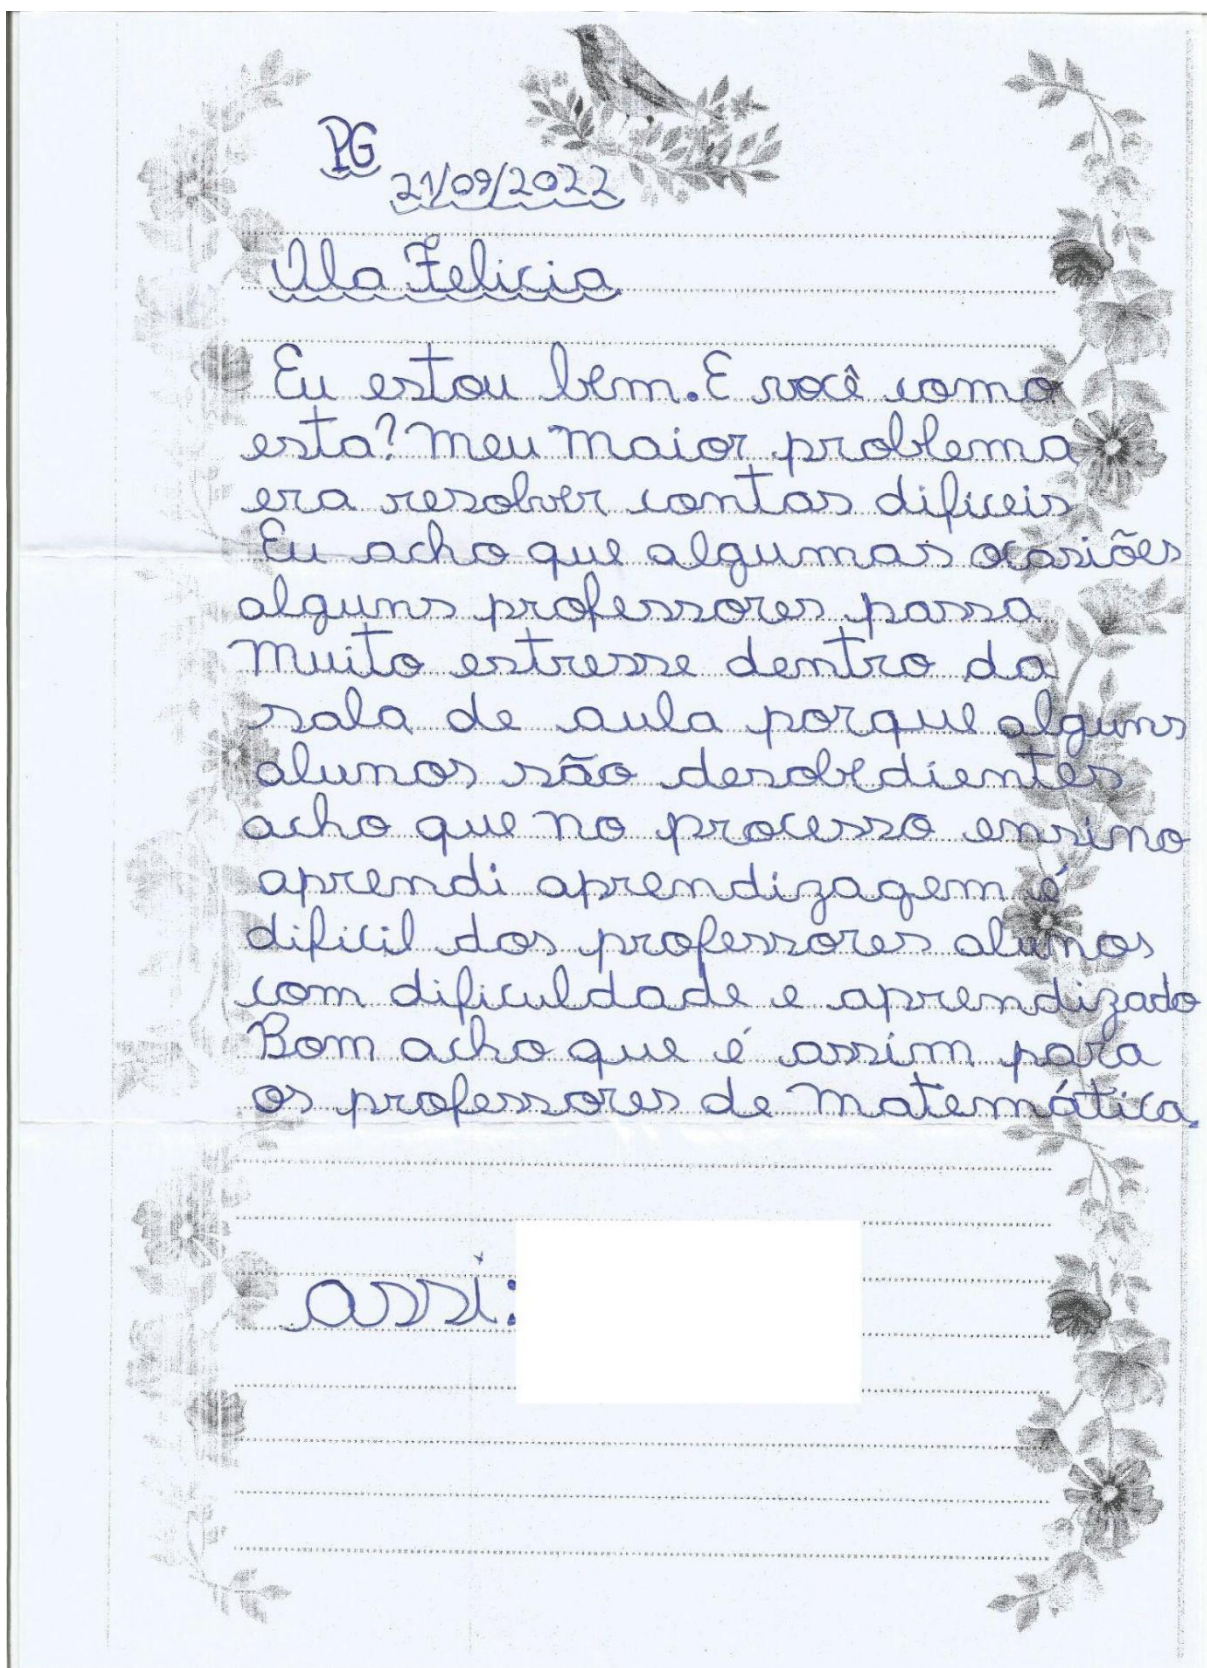 PG
21/09/2022
Ola Felicia
Eu estou bem. E você como
esta? Meu maior problema
era resolver contas dificeis
Eu acho que algumas ocasiões
alguns professores passa
muito estresse dentro da
sala de aula porque alguns
alunos são desobedientes
acho que no processo ensino
aprendi aprendizagem é
dificil dos professores alunos
com dificuldade e aprendizado
Bom acho que é assim para
os professores de matemática.
assi: